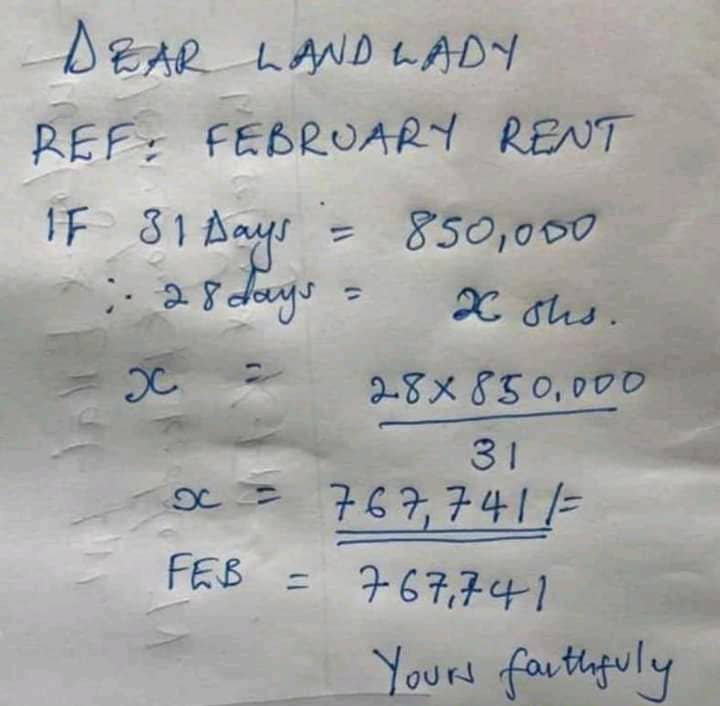 DEAR LANDLADY
REF: FEBRUARY RENT
IF 31 Days = 850,000
∴ 28 days = x shs.
x = 28 x 850,000
31
x = 767,741/=
FEB = 767,741
Yours faithfuly